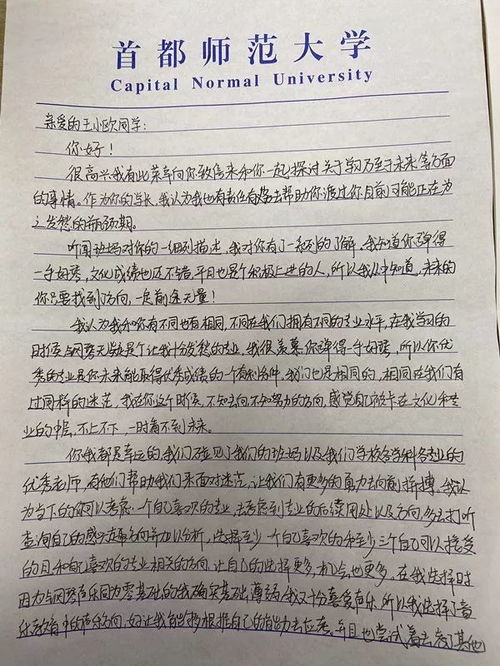 首都师范大学
Capital Normal University
亲爱的王小欧同学：
你好！
很高兴我有此荣幸向你致信来和你一起探讨关于学习乃至于未来等方面
的事情。作为你的学长，我认为我也有责任有去帮助你渡过你目前可能正在为
之发愁的瓶颈期。
听闻班妈对你的一细列描述，我对你有了一系列的了解，我知道你弹得
一手好琴，文化成绩也还不错，平日也是个积极上进的人，所以我从中知道，未来的
你只要找到方向，一定前途无量！
我认为我和你有不同也有相同，不同在我们拥有不同的专业水平，在我学习的
时候与钢琴无疑是个让我十分发愁的专业，我很羡慕你弹得一手好琴，所以你优
秀的专业是你未来能取得优秀成绩的一个有利条件，我们也是相同的，相同在我们有
过同样的迷茫，我在你这个时候，不知去向，不知努力的方向，感觉自己被卡在文化和专
业的中层，不上不下，一时看不到未来。
你我都是幸运的，我们碰见了我们的班妈以及我们学校各学科各专业的
优秀老师，有他们帮助我们来面对迷茫，让我们有更多的勇气去向前拼搏，我认
为当下的你可以考虑一个自己喜欢的专业，去考虑到专业的后续用处以及方向，多去打听
查询自己的感兴趣方向并加以分析，选择至少一个自己喜欢的和至少三个自己可以接受
的且和自己喜欢的专业相关的方向，让自己的选择更多，机会也更多，在我选择时
因为与钢琴声乐同为零基础的我确实基础薄弱，我又十分喜爱声乐，所以我选择了音
乐教育中的声乐方向，让我能够根据自己的能力去应考，并且也尝试着去考了其他